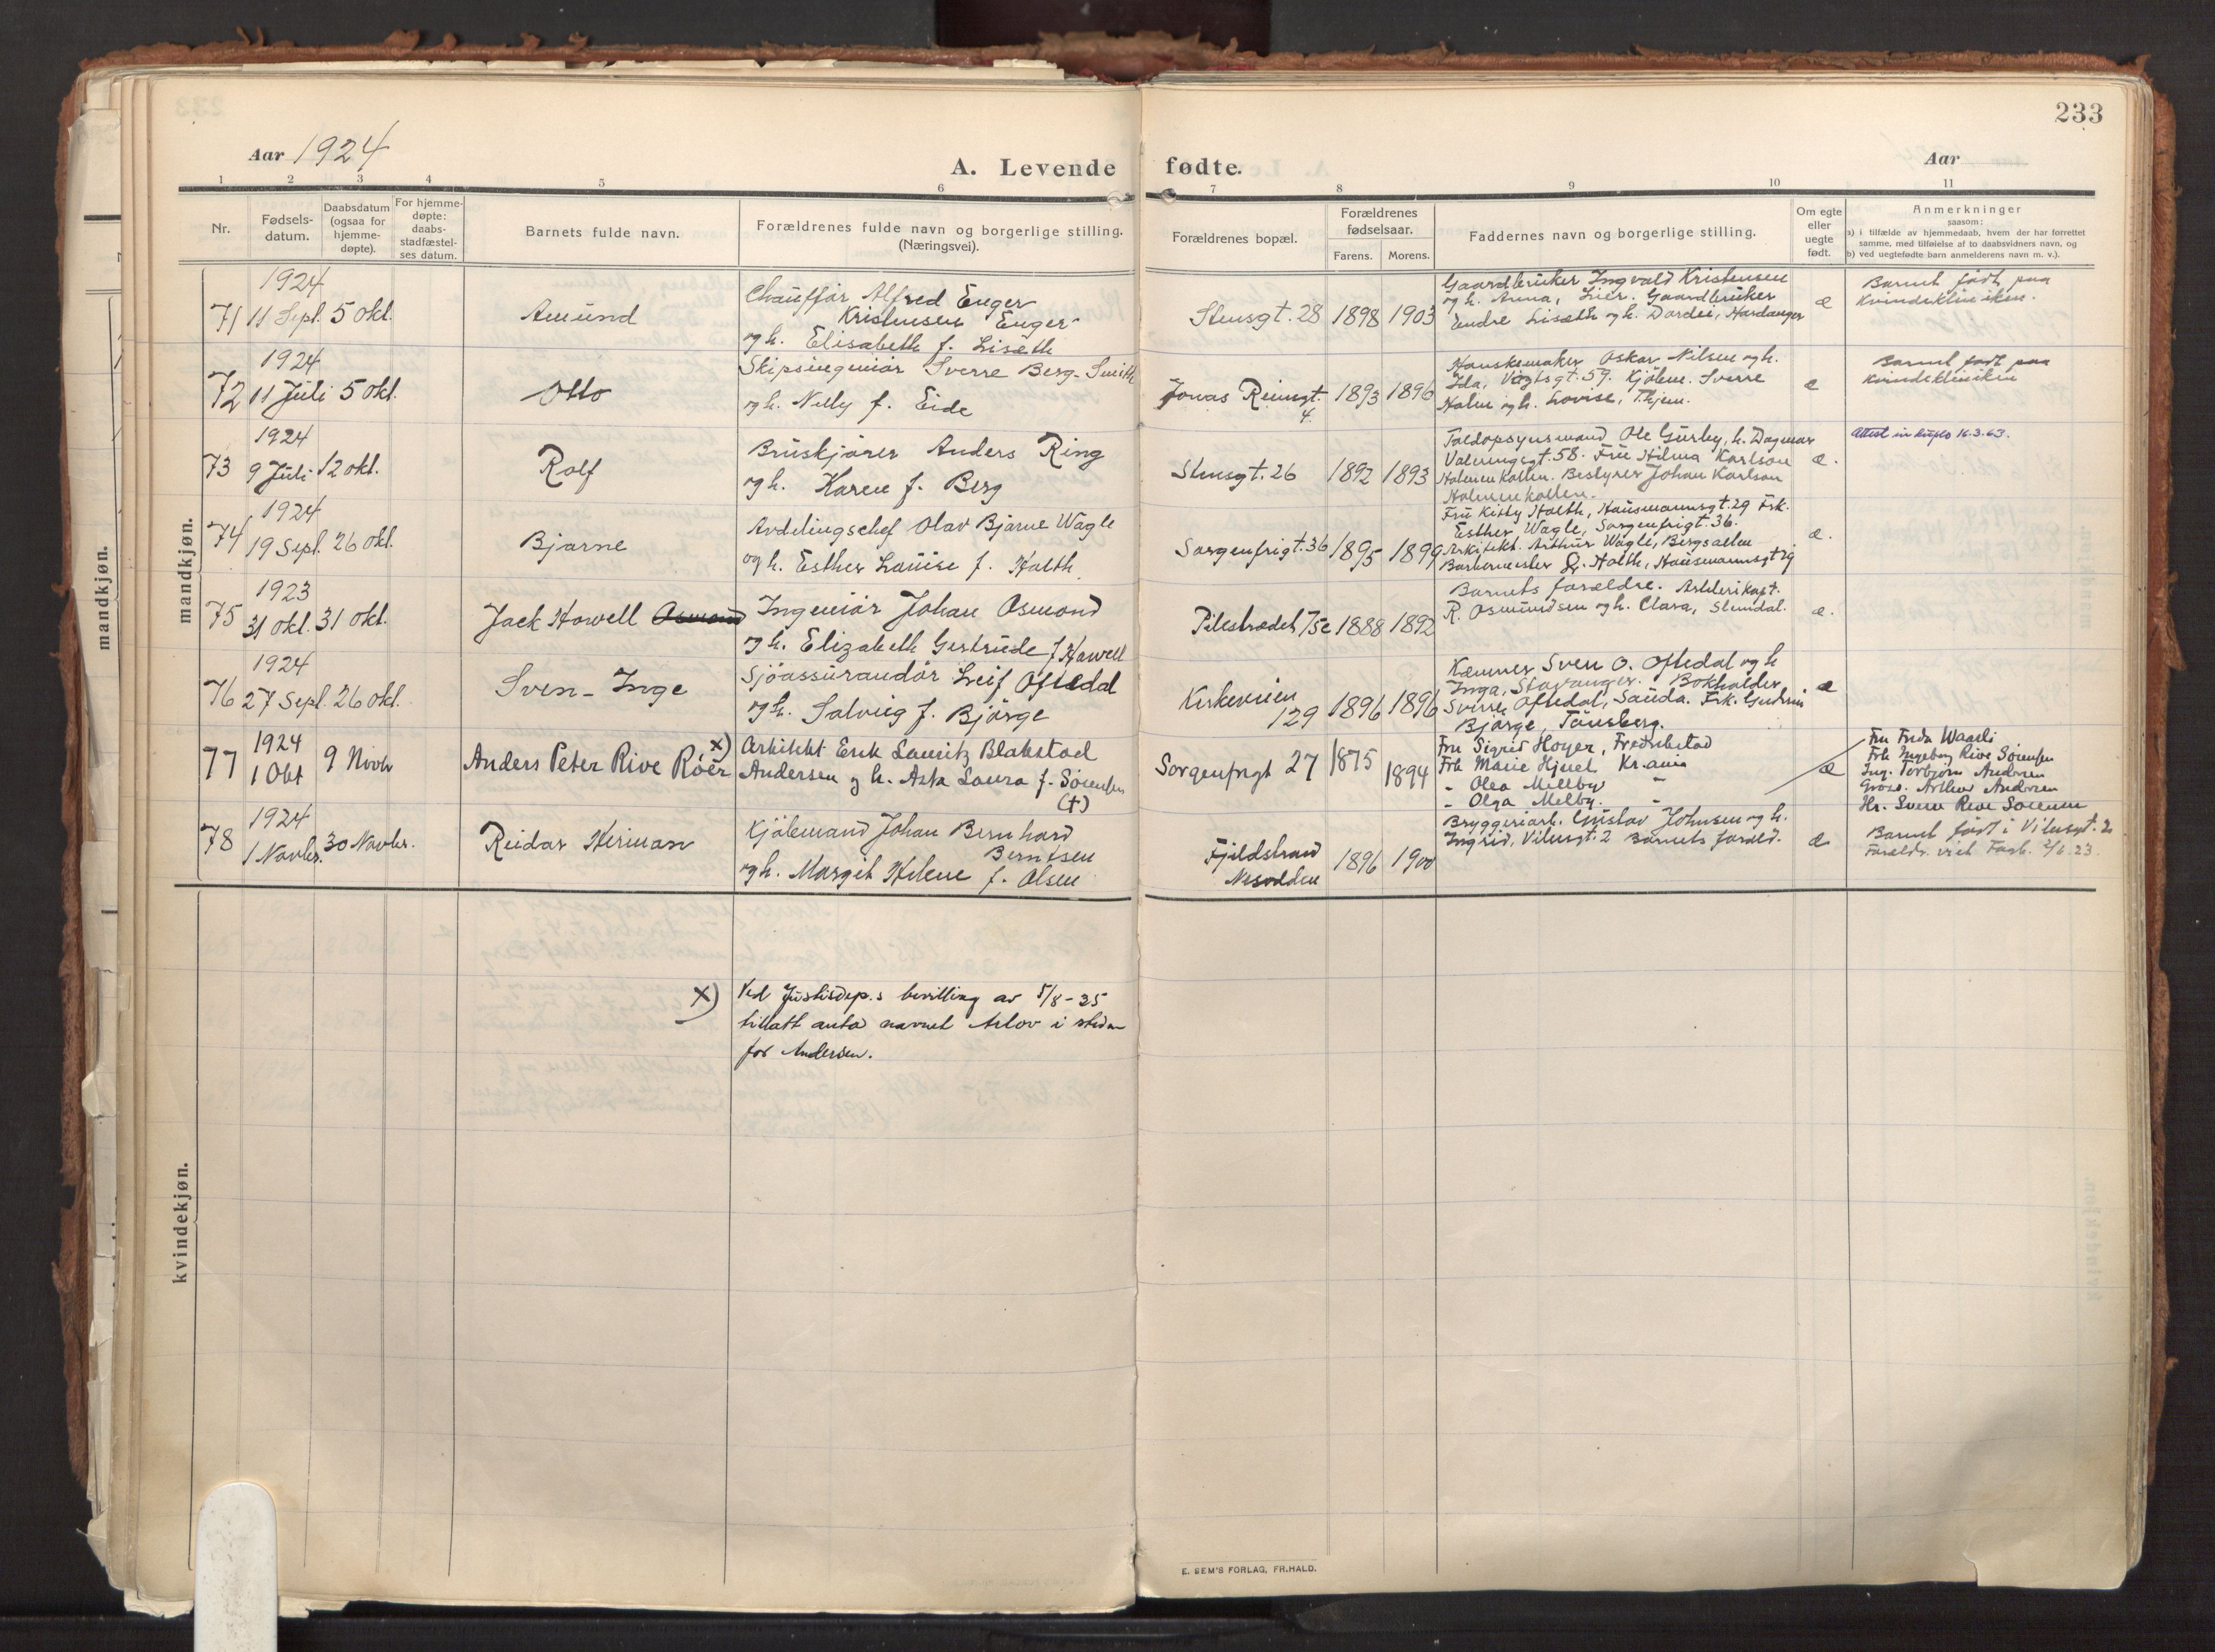 233
Aar 1924
A. Levende fødte.
Aar
1 2 3 4 5 6 7 8 9 10 11
Nr.
Fødsels-
datum.
Daabsdatum
(ogsaa for
hjemme-
døpte).
For hjemme-
døpte:
daabs-
stadfæstel-
ses datum.
Barnets fulde navn.
Forældrenes fulde navn og borgerlige stilling.
(Næringsvei).
Forældrenes bopæl.
Forældrenes
fødselsaar.
Farens. Morens.
Faddernes navn og borgerlige stilling.
Om egte
eller
uegte
født.
Anmerkninger
saasom:
a) i tilfælde av hjemmedaab, hvem der har forrettet
samme, med tilføielse af to daabsvidners navn, og
b) ved uegtefødte barn anmelderens navn m. v.).
mandkjøn.
mandkjøn.
1924
71 11 Sept. 5 Okt.
Amund
Chauffør Alfred Enger
Kristensen Enger
og h. Elisabeth f. Lisæth
Stensgt. 28 1898 1903
Gaardbruker Ingvald Kristensen
og h. Anna, Lier. Gaardbruker
Endre Lisæth og h. Dordei, Hardanger
æ
Barnet født paa
Kvindeklinikken.
1924
72 11 Juli 5 Okt.
Otto
Skipsingeniør Sverre Berg-Smith
og h. Nelly f. Eide
Jonas Reinsgt.
4.
1893 1896
Hanskemaker Oskar Nilsen og h.
Ida, Vogtsgt. 59. Kjøbm. Sverre
Holm og h. Lovise, Thjem.
æ
Barnet født paa
Kvindeklinikken
1924
73 9 Juli 12 Okt.
Rolf
Bruskjører Anders Ring
og h. Karen f. Berg
Stensgt. 26 1892 1893
Toldopsynsmand Ole Gurby, h. Dagmar
Valeringsgt. 58. Fru Hilma Karlson
Holmenkollen. Bestyrer Johan Karlson
Holmenkollen.
æ.
Attest in duplo 16.3.63.
1924
74 19 Sept. 26 Okt.
Bjarne
Avdelingschef Olav Bjarne Wagle
og h. Esther Louise f. Holth
Sorgenfrigt. 36 1895 1899
Fru Kitty Holth, Hausmannsgt. 29 Frk.
Esther Wagle, Sorgenfrigt. 36.
Arkitekt. Arthur Wagle, Bergsalleen
Barbermester Holth, Hausmannsgt 29
æ.
1923
75 31 Okt. 31 Okt.
Jack Howell Osmond
Ingeniør Johan Osmond
og h. Elizabeth Gertrude f. Howell
Pilestrædet 75c 1888 1892
Barnets forældre. Artillerikapt.
R. Osmundsen og h. Clara, Slemdal.
æ.
1924
76 27 Sept. 26 Okt.
Sven-Inge
Sjøassurandør Leif Oftedal
og h. Solveig f. Bjørge
Kirkeveien
129
1896 1896
Kæmner Sven O. Oftedal og h
Inga, Stavanger. Bokholder
Sverre Oftedal, Sauda. Frk. Gudrun
Bjørge, Tønsberg.
æ
1924
77 1 Okt 9 Novbr
Anders Peter Rive Röer x)
Arkitekt Erik Lauritz Blakstad
Andersen og h. Aska Laura f. Sörensen
(†)
Sorgenfrigt 27 1875 1894
Fru Sigrid Hoyer, Fredrikstad
Frk Marie Hjuel Kr.ania
- Olea Mellby "
- Olga Melby. -
æ
Fru Frida Waarli
Frk Ingeborg Rive Sörensen
Ing. Torbjörn Andersen
Gross. Arthur Andersen
Hr. Sverre Rive Sörensen
1924
78 1 Novbr. 30 Novbr.
Reidar Herman
Kjølemand Johan Bernhard
Berntsen
og h. Margit Helene f. Olsen
Fjeldstrand
Nesodden
1896 1900
Bryggeriarb. Gustav Johnsen og h.
Ingrid, Vibesgt. 2 Barnets foræld.
æ
Barnet født i Vibesgt. 2
Foreldr. viet Fagb. 2/6.23.
x) Ved Justisdep.s bevilling av 5/8-25
tillatt anta navnet Arlov i steden
for Andersen.
kvindekjøn.
E. SEM'S FORLAG, FR.HALD.